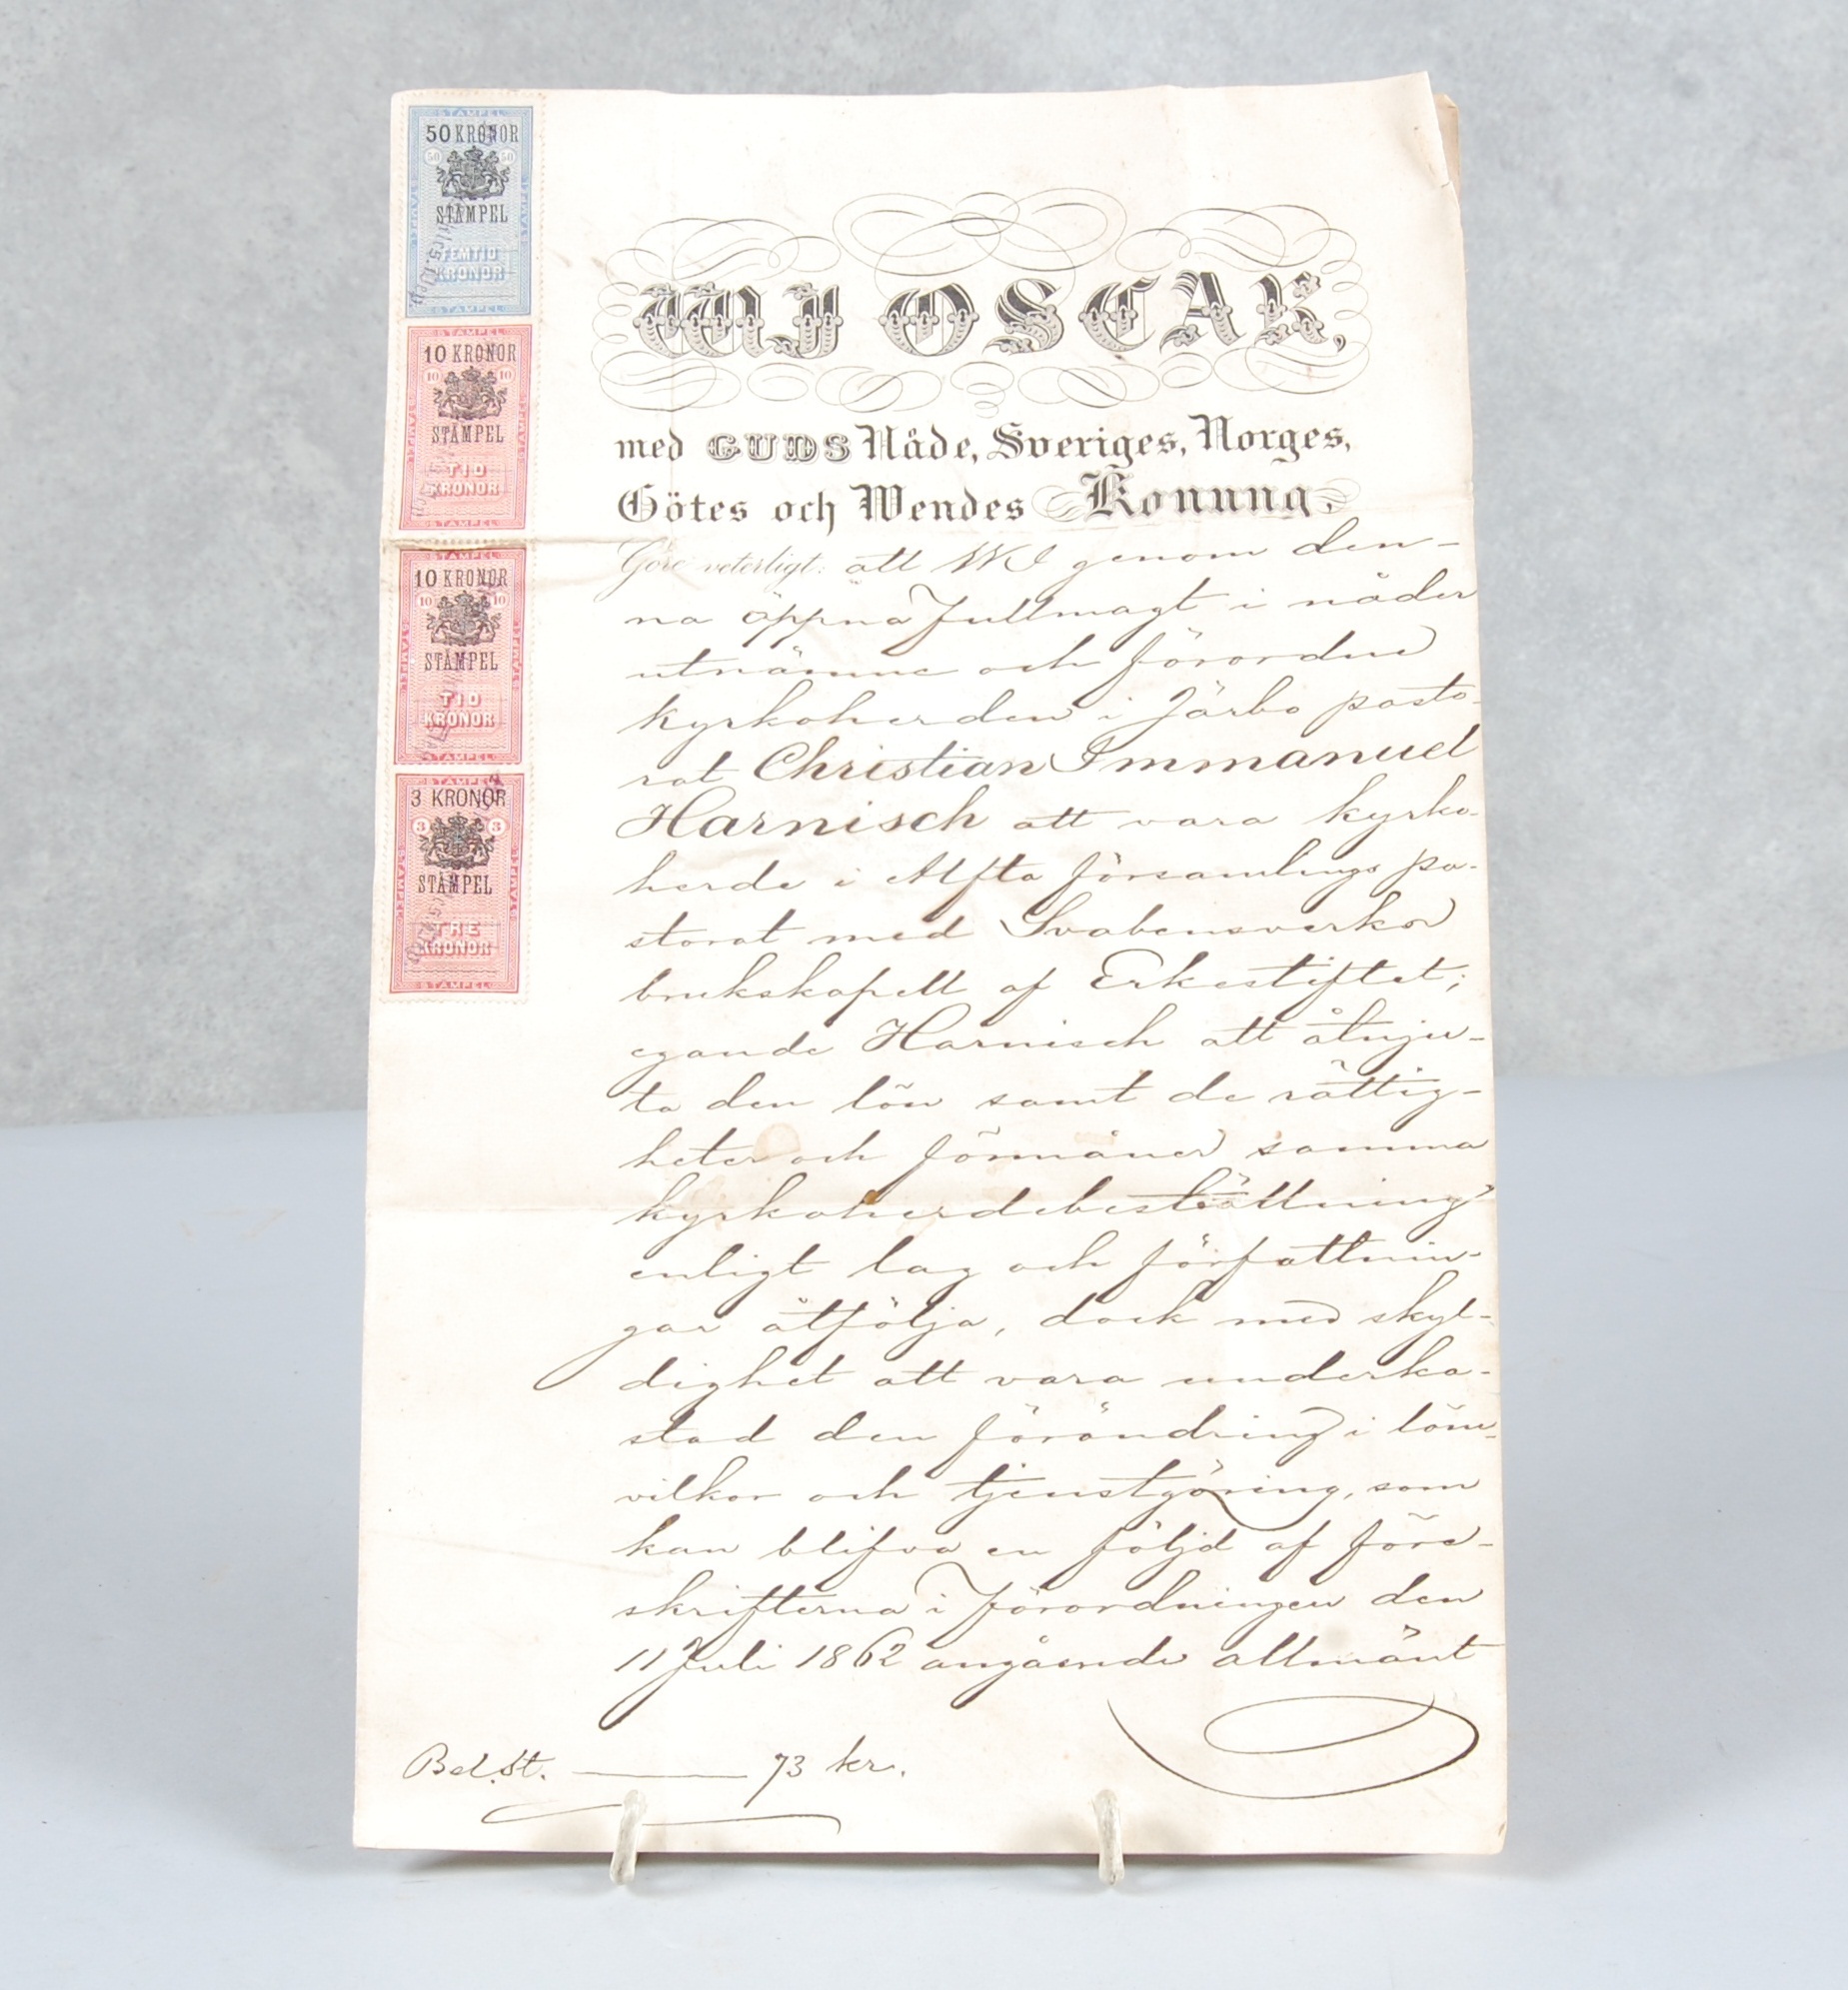 STÄMPEL
50 KRONOR
50 50
STÄMPEL
FEMTIO
KRONOR
STÄMPEL
STÄMPEL
10 KRONOR
10 10
STÄMPEL
TIO
KRONOR
STÄMPEL
STÄMPEL
10 KRONOR
10 10
STÄMPEL
TIO
KRONOR
STÄMPEL
STÄMPEL
3 KRONOR
3 3
STÄMPEL
TRE
KRONOR
STÄMPEL
WJ OSCAR,
med GUDS Nåde, Sveriges, Norges,
Götes och Wendes Konung.
Göre veterligt: att WI genom den-
na öppna Fullmagt i nåder
utnämne och förordne
kyrkoherden i Järbo pasto-
rat Christian Immanuel
Harnisch att vara kyrko-
herde i Alfta församlings pa-
storat med Svabensverks
brukskapell af Erkestiftet;
egande Harnisch att åtnju-
ta den lön samt de rättig-
heter och förmåner samma
kyrkoherdebeställning
enligt lag och författnin-
gar åtfölja, dock med skyl-
dighet att vara underka-
stad den förändring i löne-
vilkor och tjenstgöring, som
kan blifva en följd af före-
skrifterna i Förordningen den
11 Juli 1862 angående allmänt
Bel. St. 73 kr.